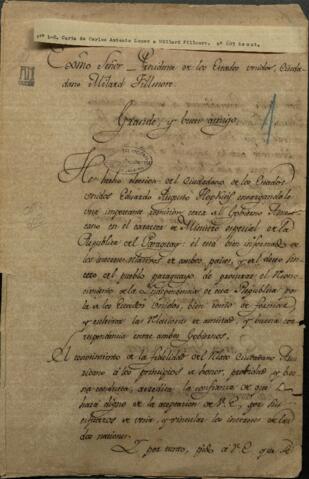 Nº 1-2. Carta de Carlos Antonio Lopez a Millard Fillmore.
Exmo Señor Presidente de los Estados unidos, Ciuda-
dano Milard Fillmore.
Grande, y buen amigo,
He hecho eleccion del Ciudadano de los Estados
unidos Eduardo Augusto Hopkins encargandole
una importante comision cerca al Gobierno Ame-
ricano en el caracter de Ministro especial de la
Republica del Paraguay: él está bien informado de
los intereses de ambos paises, y el deseo sin-
cero del pueblo paraguayo de el Recono-
cimiento de la Independencia de esta Republica por
los Estados Unidos bien como de
y las Relaciones de amistad, y buena co-
rrespondencia entre ambos Gobiernos.
El conocimiento de la fidelidad del Ciudadano Ame-
ricano á los principios de honor, probidad, y bue-
na conducta, la confianza de que se
hará digno de la aceptacion de V.E. por sus
esfuerzos de unir, y vincular los intereses de las
dos naciones.
Y por tanto, pido á V.E. que